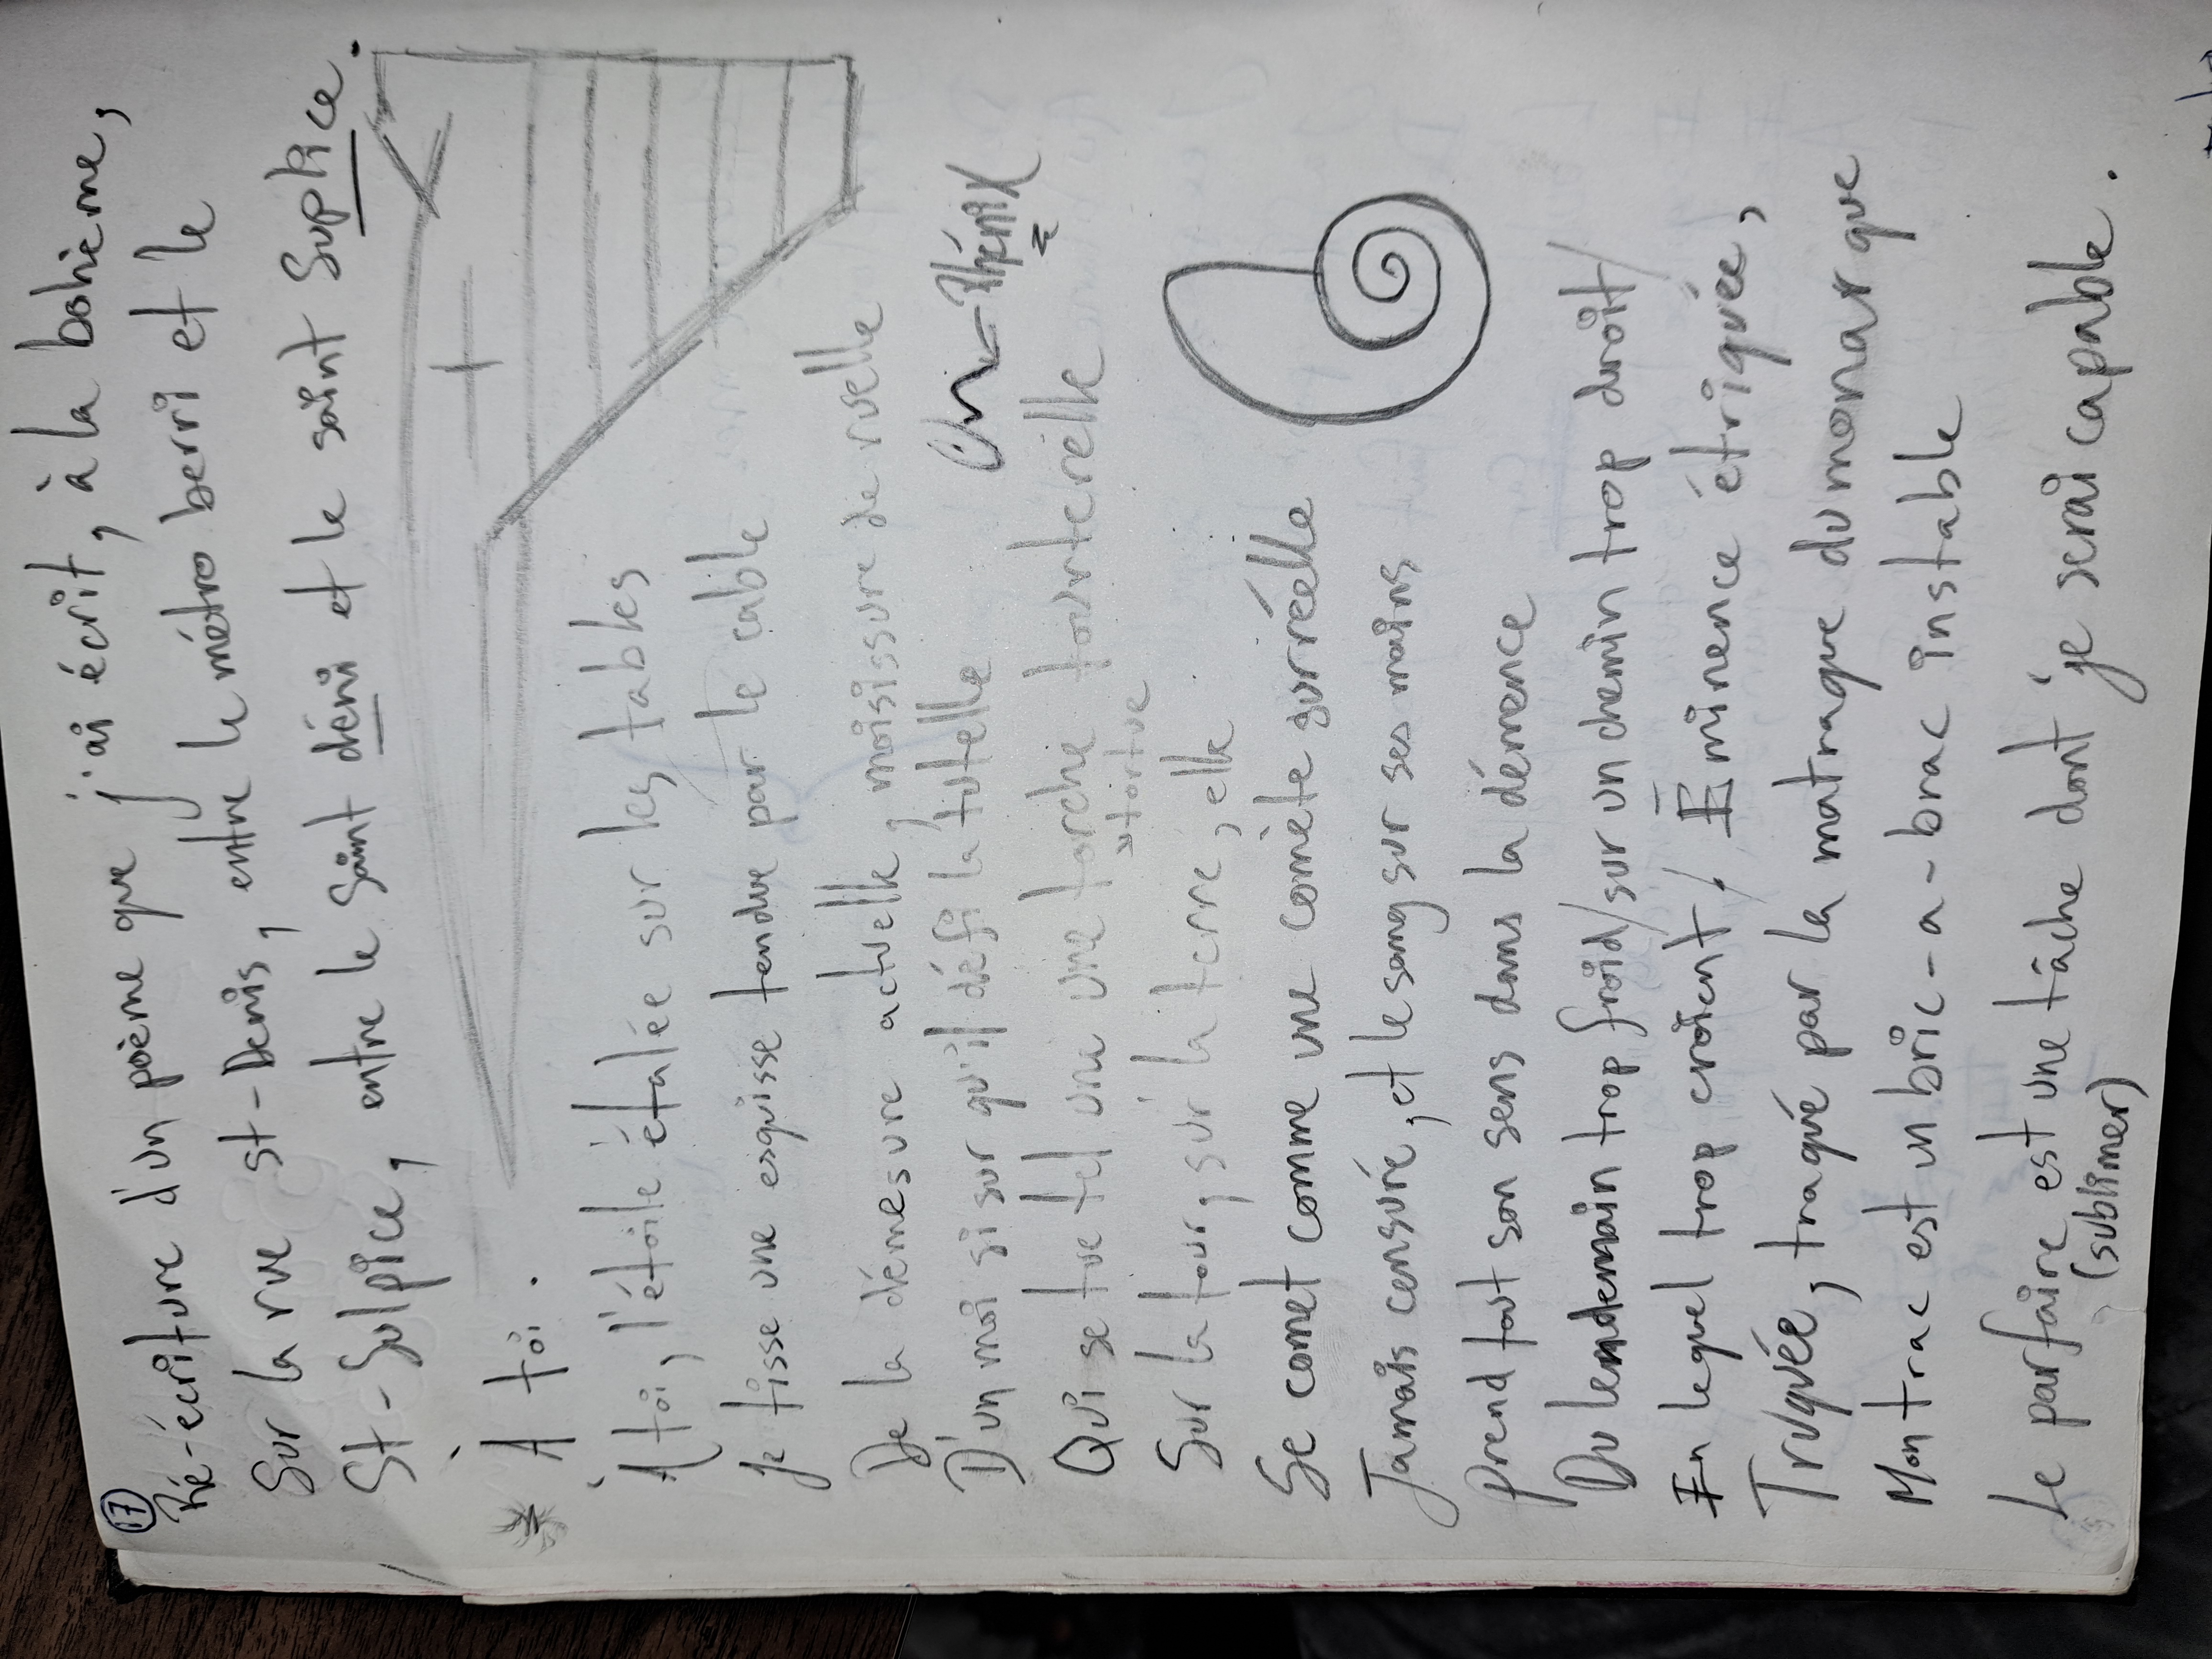 17
Ré-écriture d'un poème que j'ai écrit, à la bohème,
Sur la rue St-Denis, entre le métro berri et le
St-Sulpice, entre le saint déni et le saint Suplice.
À toi.
À toi, l'étoile étalée sur les tables
Je tisse une esquisse tendue par le cable
De la démesure actuelle, moisissure de ruelle
D'un moi si sur qu'il défi la tutelle
Qui se tue tel une une torche tourterelle
utortue
Sur la tour, sur la terre, elle
Se comet comme une comète surréelle
Jamais censuré, et le sang sur ses mains
Prend tout son sens dans la démence
Du lendemain trop froid/sur un chemin trop droit/
En lequel trop croient/. Eminence étriquée,
Truquée, traqué par la matraque du monarque
Mon trac est un bric-a-brac instable
Le parfaire est une tâche dont je serai capable.
(sublimer)